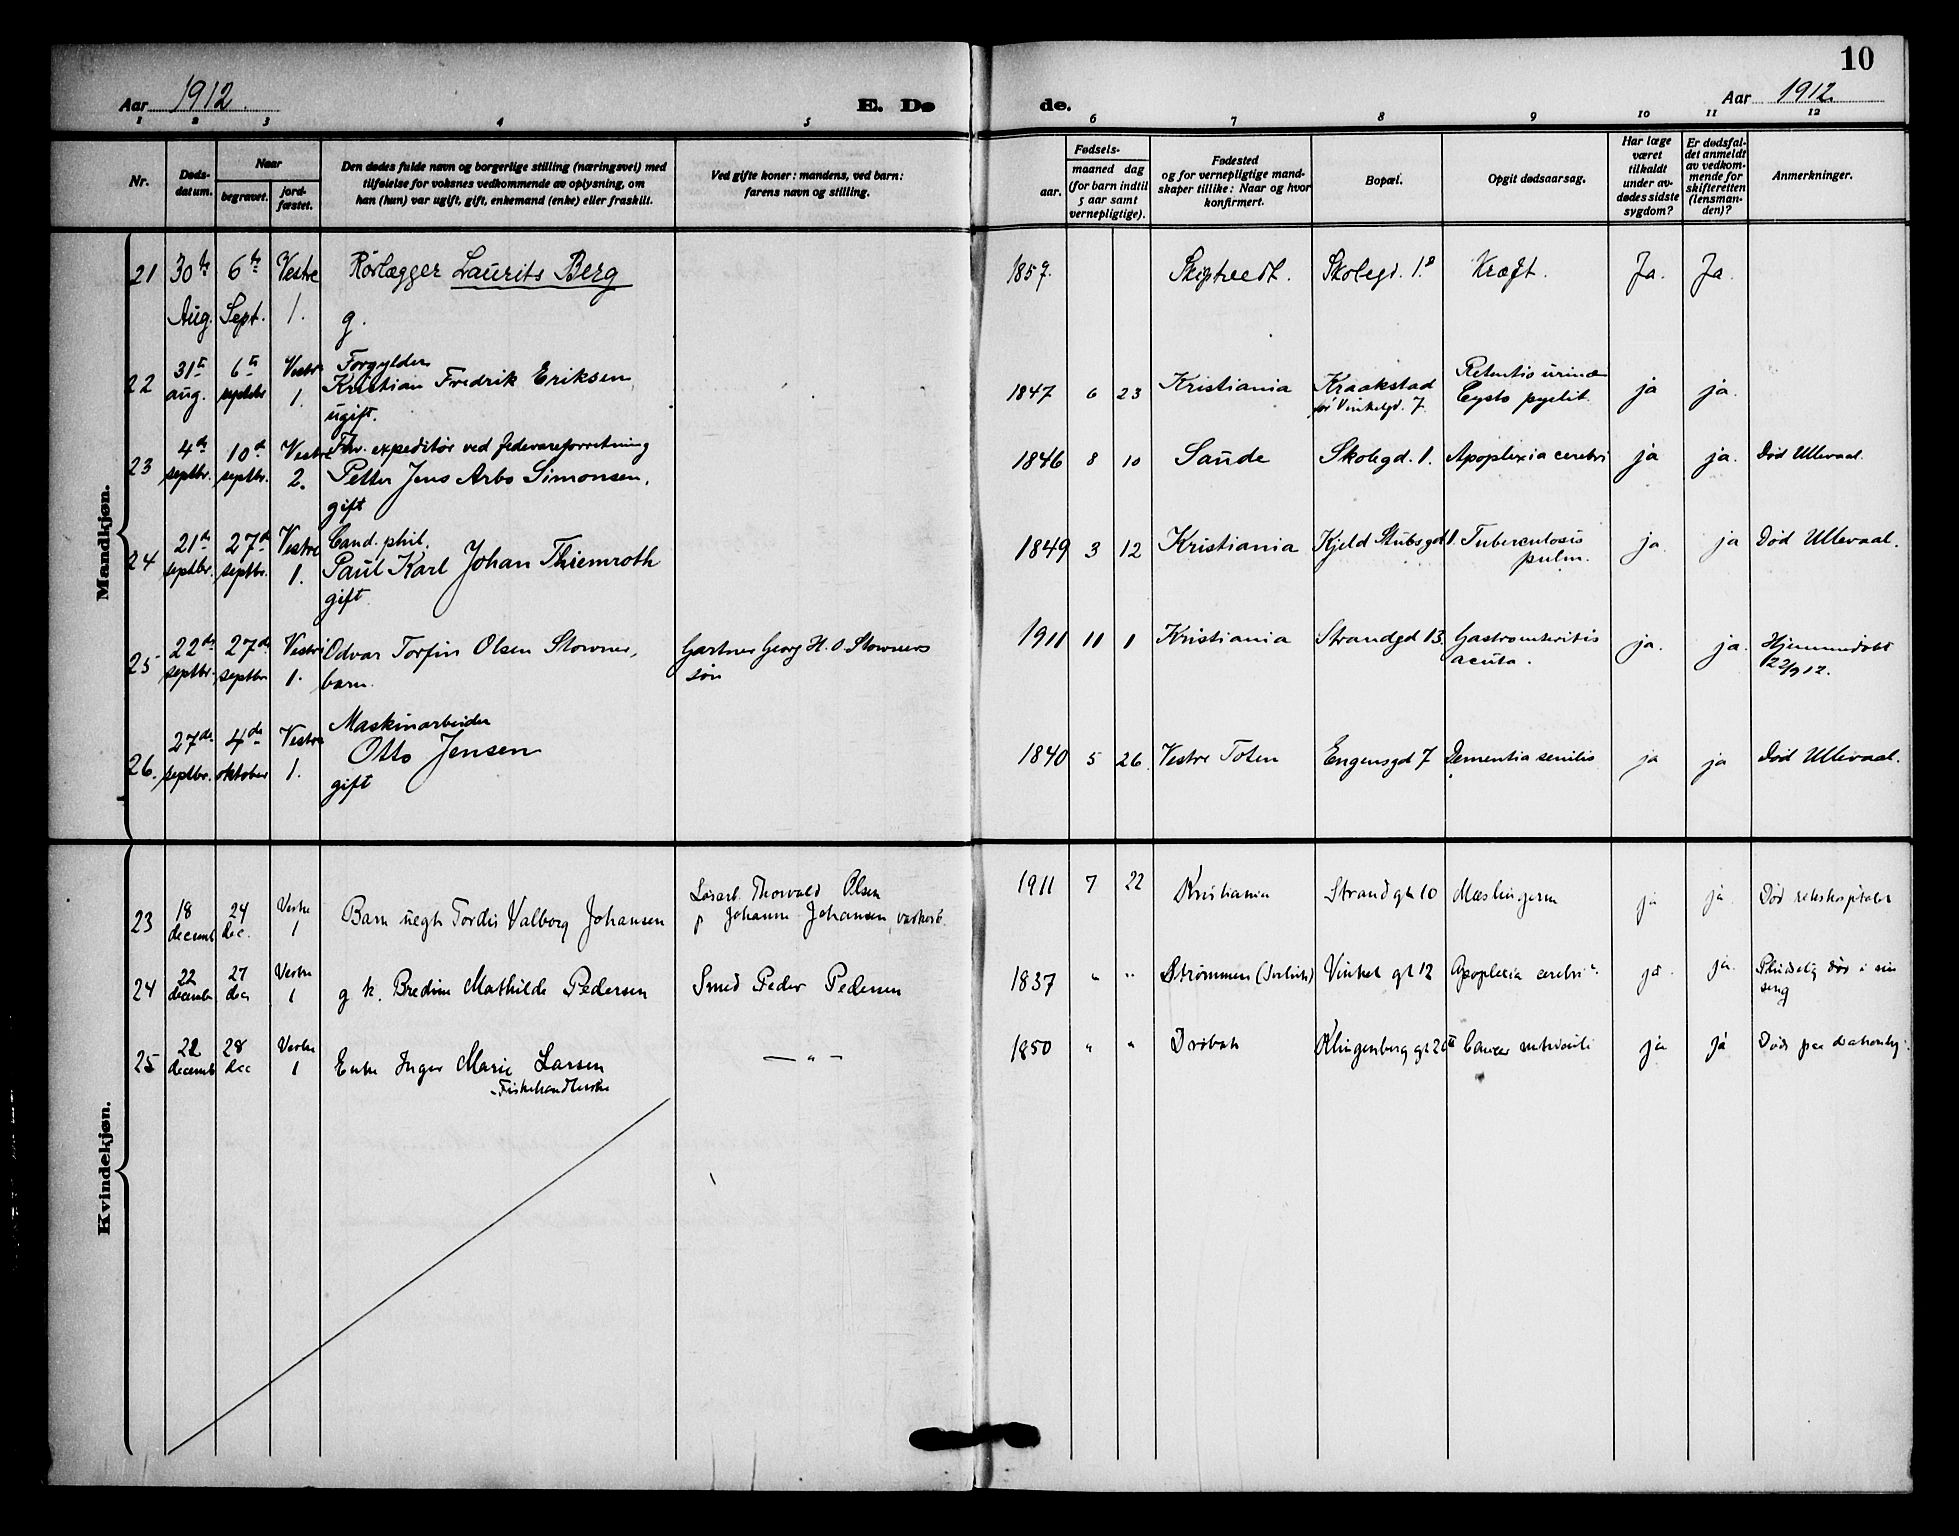 10
Aar 1912. E. Dø de. Aar 1912.
1 2 3 4 5 6 7 8 9 10 11 12
Nr.
Døds-
datum.
Naar
begravet.
jord-
fæstet.
Den dødes fulde navn og borgerlige stilling (næringsvei) med
tilføielse for voksnes vedkommende av oplysning, om
han (hun) var ugift, gift, enkemand (enke) eller fraskilt.
Ved gifte koner: mandens, ved barn:
farens navn og stilling.
Fødsels-
aar.
maaned dag
(for barn indtil
5 aar samt
vernepligtige).
Fødested
og for vernepligtige mand-
skaper tillike: Naar og hvor
konfirmert.
Bopæl.
Opgit dødsaarsag.
Har læge
været
tilkaldt
under av-
dødes sidste
sygdom?
Er dødsfal-
det anmeldt
av vedkom-
mende for
skifteretten
(lensman-
den)?
Anmerkninger.
Mandkjøn.
21 30te 6te Vestre Rørlægger Laurits Berg 1857. Skiptvedt. Skolegd. 1.B Kræft. Ja. Ja.
Aug. Sept. 1. g.
22 31te 6te Vestre Forgylder
aug. septbr 1. Kristian Fredrik Eriksen, 1847 6 23 Kristiania Kraakstad Retentio urinæ ja ja.
ugift. før Vinkelgd. 7. Cysto pyelit.
23 4de 10de Vestre Fhv. expeditør ved fedevareforretning 1846 8 10 Sande Skolegd. 1. Apoplexia cerebri ja ja. Død Ullevaal.
septbr. septbr. 2. Petter Jens Arbo Simonsen,
gift
24 21de 27de Vestre Cand. phil. 1849 3 12 Kristiania Kjeld Stubsgd 1. Tuberculosis ja. ja Død Ullevaal.
septbr. septbr. 1. Paul Karl Johan Thiemroth pulm.
gift.
25 22de 27de Vestre Odvar Torfin Olsen Stowner, Gartner Georg H. O. Stowners 1911 11 1 Kristiania Strandgd 13. Gastroenteritis ja. ja. Hjemmedøbt
septbr. septbr 1. barn. søn acuta. 22/9 12.
26. 27de 4de Vestre Maskinarbeider
septbr. oktober 1. Otto Jensen 1840 5 26. Vestre Toten Engensgd 7 Dementia senilis ja ja Død Ullevaal.
gift
Kvindekjøn.
23 18 24 Vestre Barn uegte Tordis Valborg Johansen Løsarb. Thorvald Olsen 1911 7 22 Kristiania Strand gt 10 Mæslingerne ja ja. Død
decemb dec. 1 Johanne Johansen,
24 22 27 Vestre g k. Bredine Mathilde Pedersen Smed Peder Pedersen 1837 " " Strømmen Vinkel gt 12 Apoplexia cerebri ja. ja. Pludselig død i sin
decembr dec 1 seng
25 22 28 Vestre Enke Inger Marie Larsen — " — 1850 " " Drøbak Klingenberg gt Cancer ventriculi ja ja Død paa
decemb dec 1 Fiskehandlerske